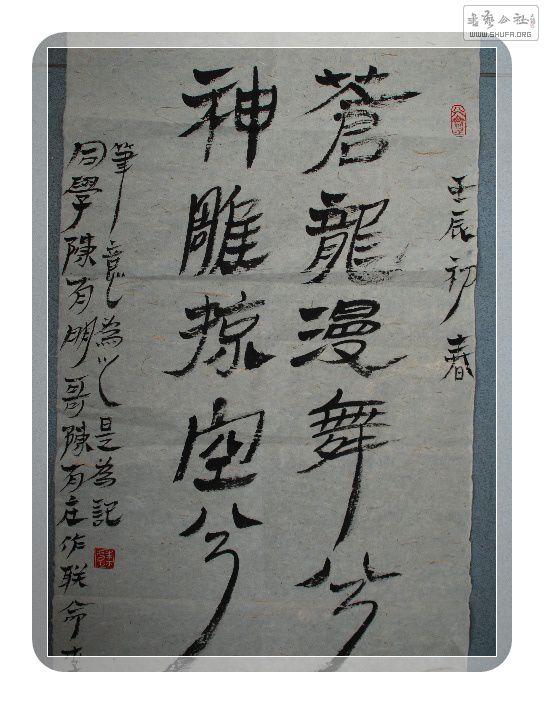 壬辰初春
蒼龍漫舞兮
神雕掠空兮
同學陳有明哥陳有庄作联命李
筆意為之是為記
書艺公社
WWW.SHUFA.ORG